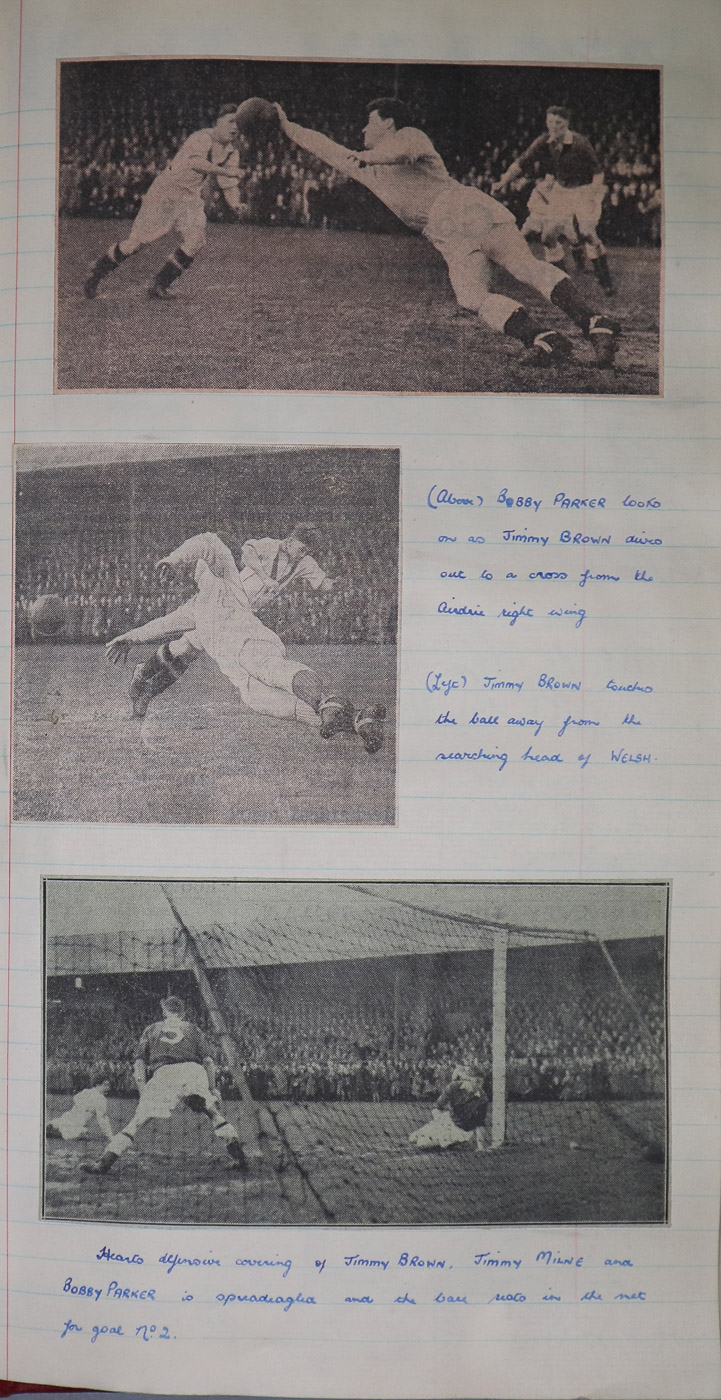 (Above) BOBBY PARKER looks
on as JIMMY BROWN dives
out to a cross from the
Airdrie right wing
(Left) JIMMY BROWN touches
the ball away from the
searching head of WELSH.
5
Hearts defensive covering of JIMMY BROWN, JIMMY MILNE and
BOBBY PARKER is spreadeagled and the ball rests in the net
for goal No 2.